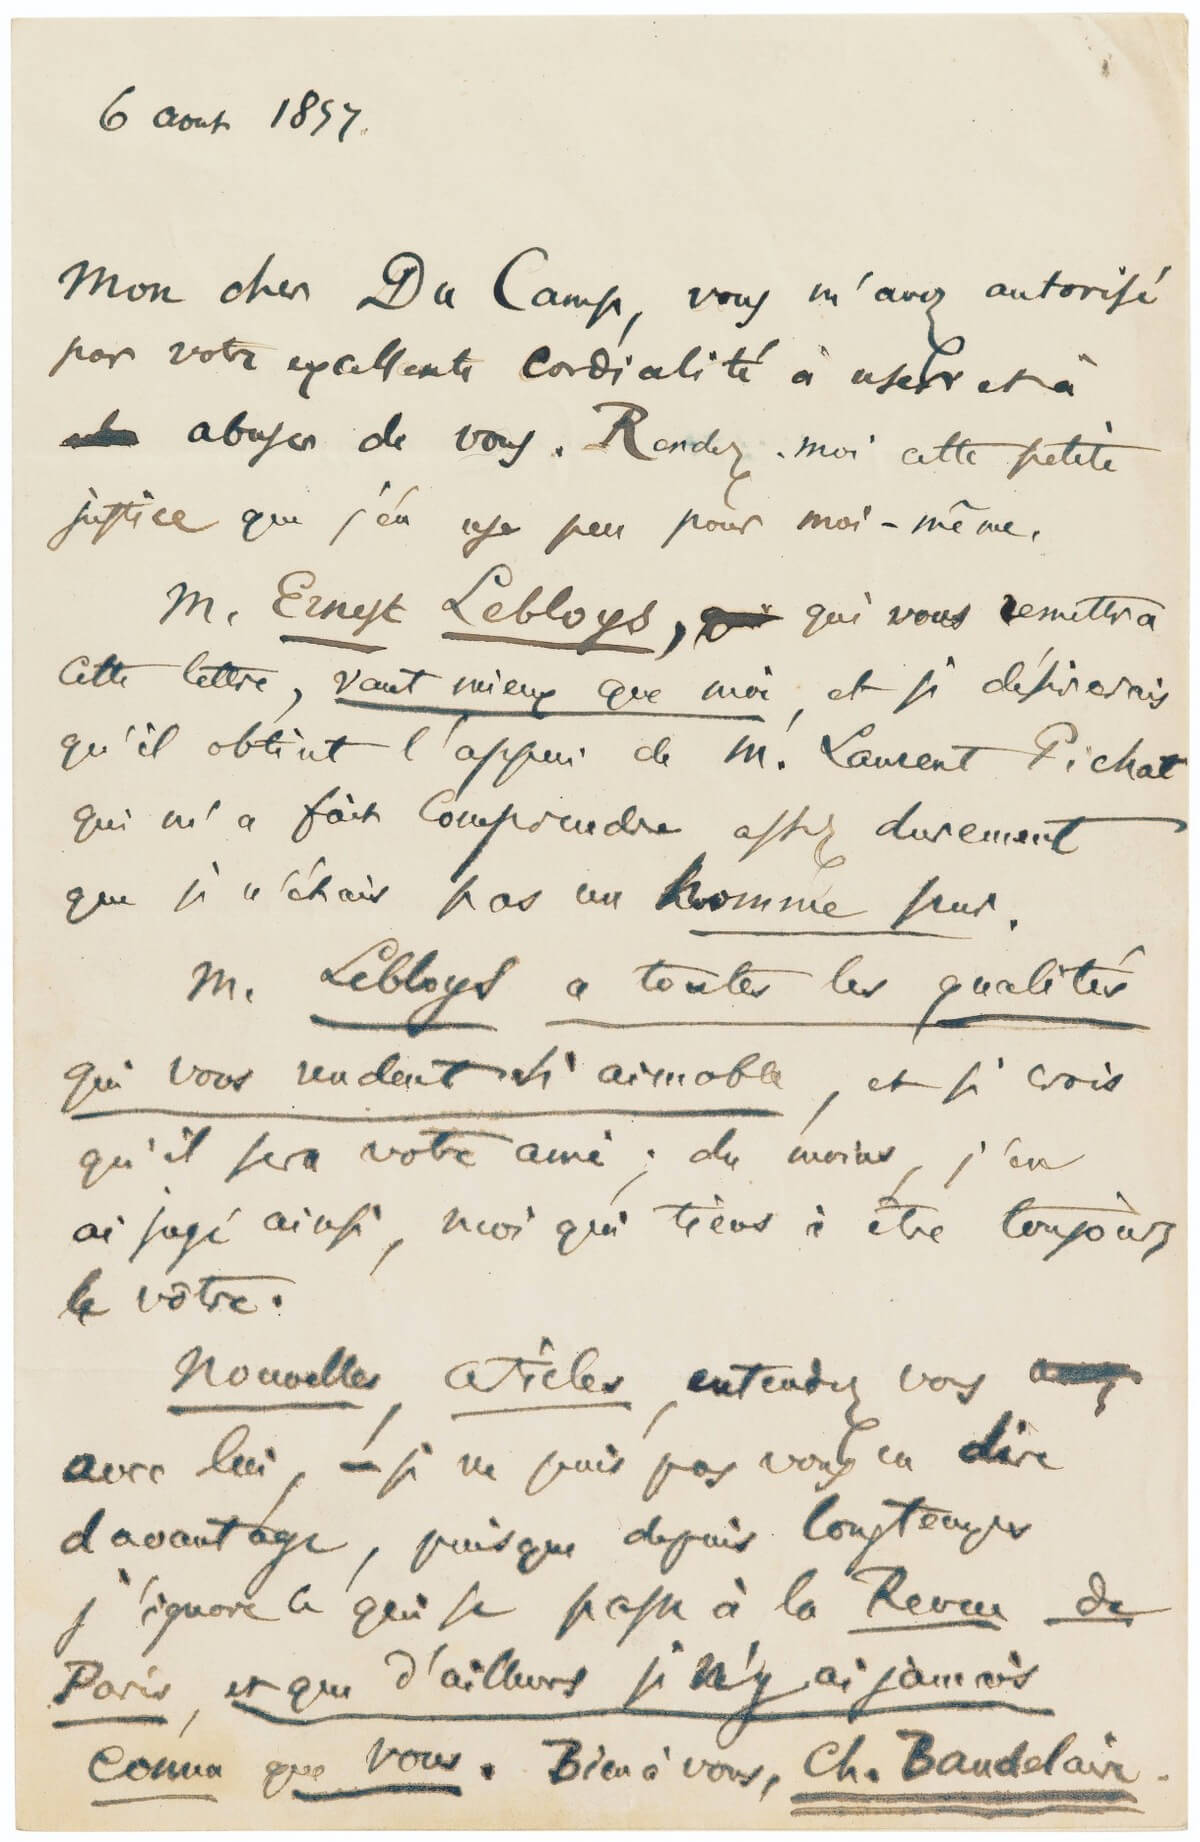 6 aout 1857.
Mon cher Du Camp, vous m'avez autorisé
par votre excellente cordialité à user et à
abuser de vous. Rendez-moi cette petite
justice que j'en use peu pour moi-même.
M. Ernest Lebloys, qui vous remettra
cette lettre, vaut mieux que moi, et je désirerais
qu'il obtînt l'appui de M. Laurent Pichat
qui m'a fait comprendre assez durement
que je n'étais pas un homme pur.
M. Lebloys a toutes les qualités
qui vous rendent si aimable, et je crois
qu'il sera votre ami ; du moins, j'en
ai jugé ainsi, moi qui tiens à être toujours
le vôtre.
Nouvelles, articles, entendez vous
avec lui, – je ne puis pas vous en dire
davantage, puisque depuis longtemps
j'ignore ce qui se passe à la Revue de
Paris, et que d'ailleurs je n'y ai jamais
connu que vous. Bien à vous, Ch. Baudelaire.